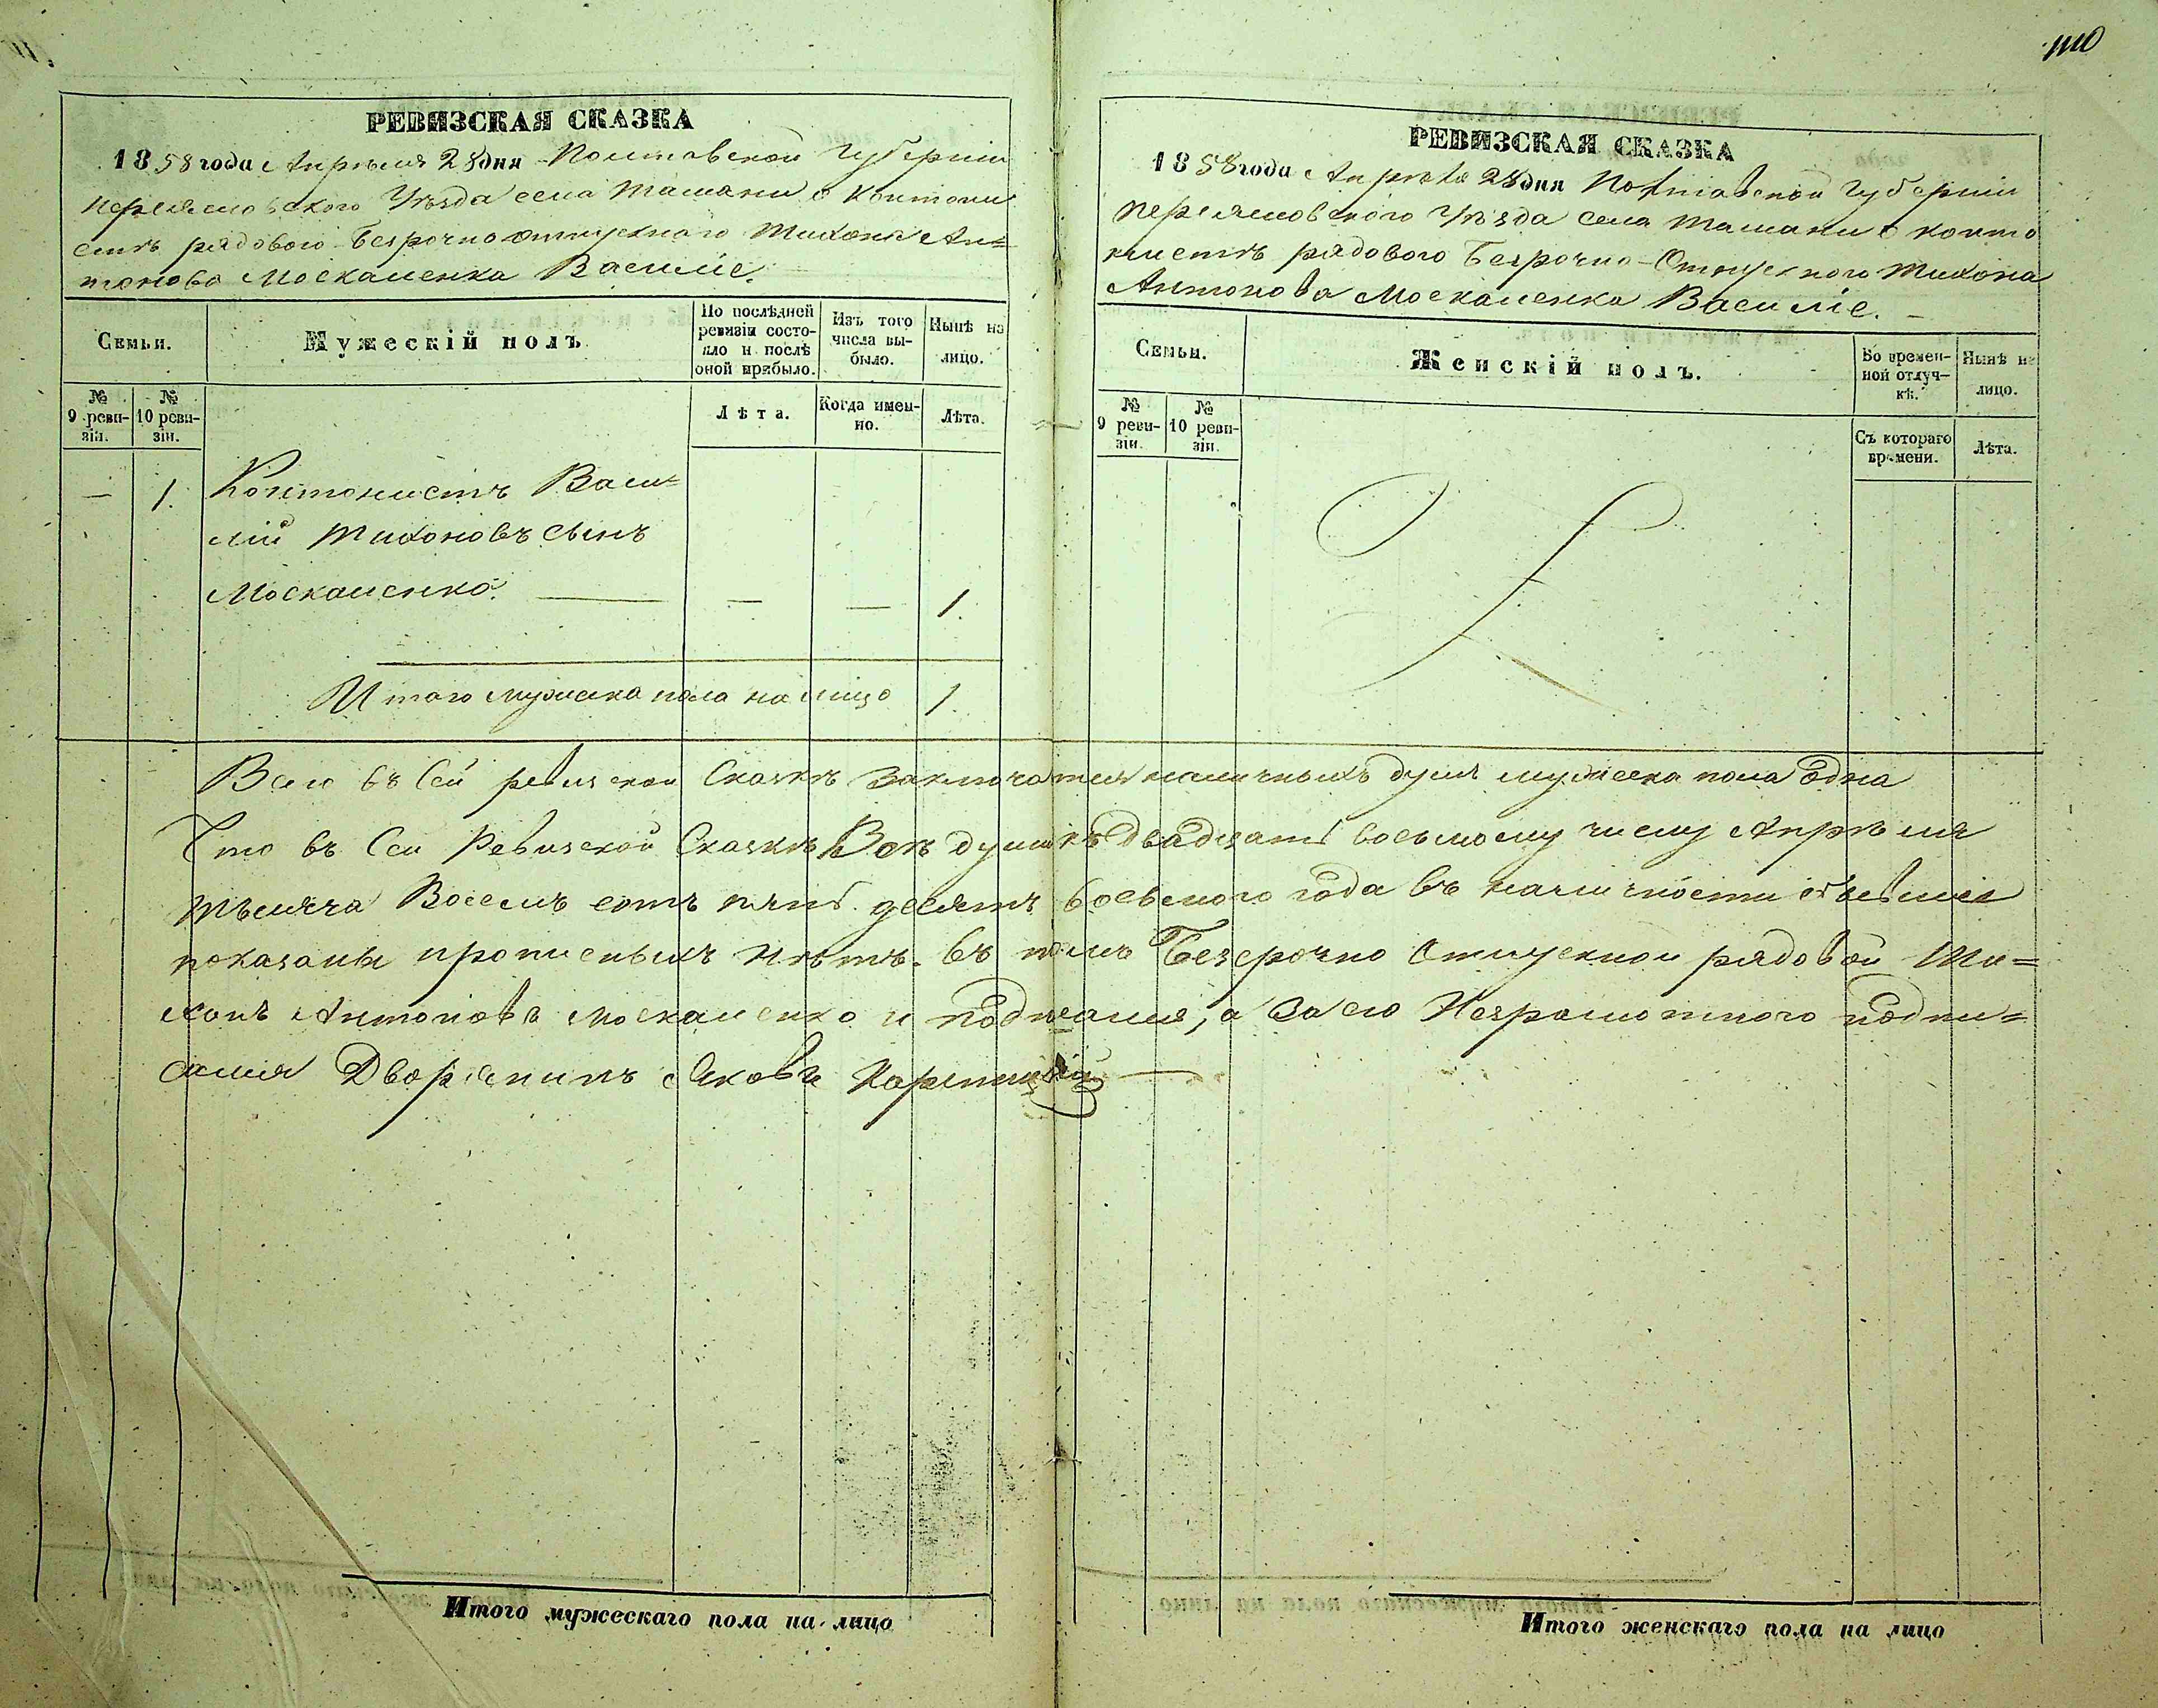 1110
РЕВИЗСКАЯ СКАЗКА
1858 года Апрѣля 28 дня Полтавской Губерніи
Переяславского Уѣзда села Ташани о Кантони
стѣ рядового Безрочно отпускного Тихона Ан=
тонова Москаленка Василіе.
Семьи.
Мужескій полъ
По послѣдней ревизіи состо-
яло и послѣ оной прибыло.
Изъ того числа вы-
было.
Нынѣ на лицо.
№ 9 реви-
зіи.
№ 10 реви-
зіи.
Лѣта.
Когда имен-
но.
Лѣта.
— 1. Контонистъ Васи=
лій Тихоновъ сынъ
Москаленко. — — — 1.
Итого мужеска пола на лицо 1.
РЕВИЗСКАЯ СКАЗКА
1858 года Апрѣля 28 дня Полтавской Губерніи
Переясловского Уѣзда села Ташани о конто
нистѣ рядового Безрочно-Отпускного Тихона
Антонова Москаленка Василіе.
Семьи.
Женскій полъ.
Во времен-
ной отлуч-
кѣ.
Нынѣ на лицо.
№ 9 реви-
зіи.
№ 10 реви-
зіи.
Съ котораго времени.
Лѣта.
Всего въ Сей ревизской Сказкѣ заключатся наличныхъ душъ мужеска пола одна
Что въ Сей Ревизской Сказкѣ Всѣ души къ двадцать восьмому числу Апрѣля
тысяча Восемъ сотъ пять десятъ восьмого года въ наличности бывшіе
показаны прописныхъ нѣтъ. въ томъ Безсрочно Отпускной рядовой Ти=
хонъ Антоновъ Москаленко и подписался, а За его Неграмотного подпи=
сался Дворянинъ Яковъ
Итого мужескаго пола на лицо
Итого женскаго пола на лицо